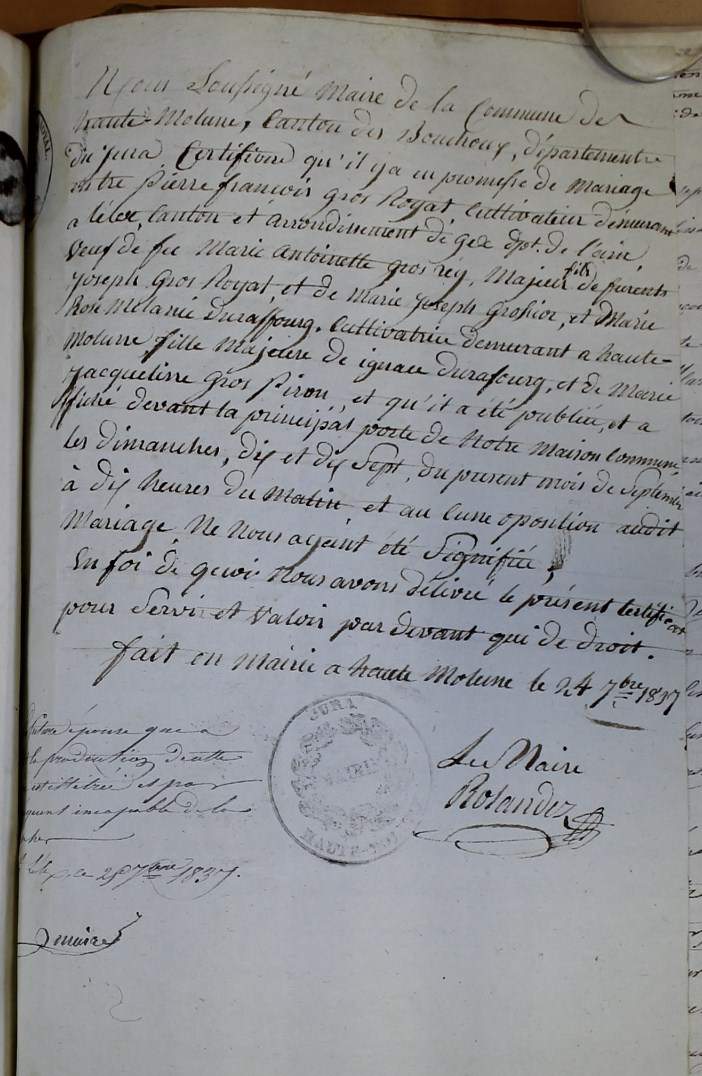 Nous Soussigné Maire de la Commune de
haute-Molune, Canton des Bouchoux, département
du Jura Certifions qu'il y a eu promesse de Mariage
entre Pierre françois Gros Royat Cultivateur demeurant
a lélex, Canton et arrondissement de Gex dpt. de l'ain
veuf de feu Marie Antoinette gros rey, Majeur fils de fürents
Joseph Gros Royat et de Marie Joseph Grosfior, et Marie
Rose Mélanie Duraffourg, Cultivatrice demeurant a haute-
Molune fille Majeure de ignace durafourg, et de Marie
Jacqueline Gros Piron, et qu'il a été publiée, et a
fiché devant la principal porte de Notre Maison Commune
les dimanches, dix et dix Sept, du present mois de Septembre
à dix heures du Matin et au Cune oposition audit
Mariage Ne Nous ayeint été Signifiée;
En foi de quoi Nous avons délivré le présent Certificat
pour Servi et Valoir par devant qui de droit.
fait en Mairie a haute Molune le 24 7bre 1837
Le Maire
Rolandez
JURA
MAIRIE
HAUTE-MOL
future épouse que a
la production de cette
et par
incapable de la
ce 29 7bre 1837.
maire